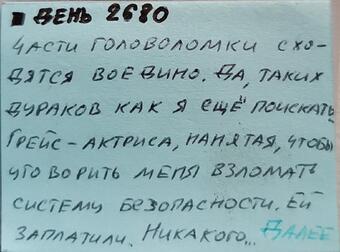 ДЕНЬ 2680
ЧАСТИ ГОЛОВОЛОМКИ СХО-
ДЯТСЯ ВОЕДИНО. ДА, ТАКИХ
ДУРАКОВ КАК Я ЕЩЁ ПОИСКАТЬ
ГРЕЙС - АКТРИСА, НАНЯТАЯ, ЧТОБЫ
УГОВОРИТЬ МЕНЯ ВЗЛОМАТЬ
СИСТЕМУ БЕЗОПАСНОСТИ. ЕЙ
ЗАПЛАТИЛИ. НИКАКОГО... ДАЛЕЕ